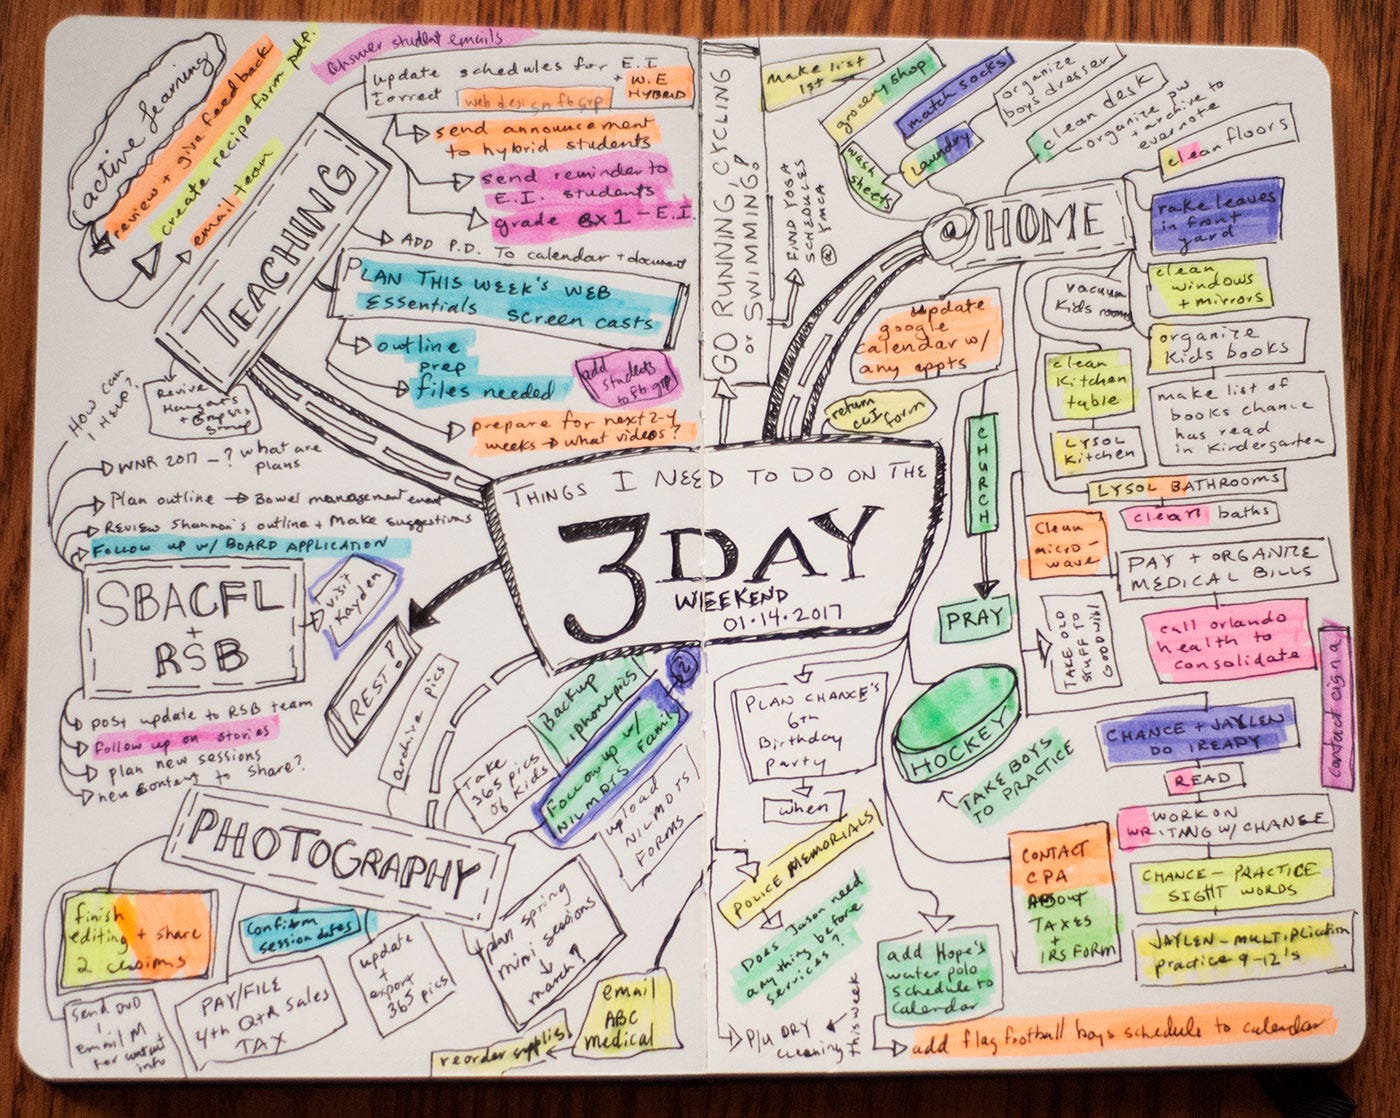 active learning
review + give feedback
create recipe form pdf.
email team
answer student emails
TEACHING
update schedules for E.I
+ W.E
HYBRID
correct web design fb grp
send announcement
to hybrid students
send reminder to
E.I. students
grade ex 1 - E.I.
ADD P.D. To calendar + document
PLAN THIS WEEK'S WEB
Essentials screen casts
outline
prep
files needed
add
students
to fb grp
prepare for next 2-4
weeks → what videos?
How can
I Help?
Revive
Hangouts
Group
WNR 2017 - ? what are
plans
Plan outline → Bowel management event
Review Shannon's outline + Make suggestions
Follow up w/ BOARD APPLICATION
SBACFL
+
RSB
visit
Kayden
REST!
post update to RSB team
follow up on stories
plan new sessions
new content to share?
THINGS I NEED TO DO ON THE
3 DAY
WEEKEND
01.14.2017
PHOTOGRAPHY
archive pics
Take
365 pics
of kids
Backup
iphone pics
Follow up w/ family
NILMDTS
2
upload
NILMDTS
FORMS
finish
editing + share
2 sessions
send DVD
email M
for contact
info
confirm
session dates
PAY/FILE
4th QTR Sales
TAX
update
+
export
365 pics
plan spring
mini sessions
march?
reorder supplies
email
ABC
medical
GO RUNNING, CYCLING
or SWIMMING!
FIND YOGA
SCHEDULES
@ YMCA
@HOME
make list
1st
grocery shop
match socks
wash
sheets
laundry
organize
boys dresser
clean desk
organize pw
+ archive to
evernote
clean floors
rake leaves
in front
yard
clean
windows
+ mirrors
vacuum
Kids rooms
organize
Kids books
clean
Kitchen
table
make list of
books chance
has read
in Kindergarten
LYSOL
Kitchen
LYSOL BATHROOMS
clean baths
Clean
micro-
wave
update
google
calendar w/
any appts
return
form
CHURCH
PRAY
PAY + ORGANIZE
MEDICAL BILLS
call orlando
health to
consolidate
contact cigna
TAKE OLD
STUFF TO
GOODWILL
CHANCE + JAYLEN
DO IREADY
READ
WORK ON
WRITING W/ CHANCE
CHANCE - PRACTICE
SIGHT WORDS
JAYLEN - MULTIPLICATION
practice 9-12's
HOCKEY
TAKE BOYS
TO PRACTICE
PLAN CHANCE'S
6th
Birthday
party
when
POLICE MEMORIALS
Does Jason need
anything before
services?
P/U DRY
cleaning
this week
CONTACT
CPA
ABOUT
TAXES
+
IRS FORM
add Hope's
water polo
schedule to
calendar
add flag football boys schedule to calendar